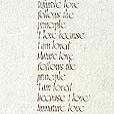 Infantile love
follows the
principle
"I love because
I am loved"
Mature love
follows the
principle
"I am loved
because I love"
Immature love